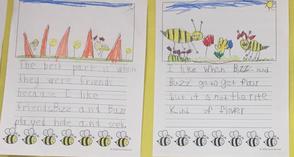 The best part is when
they were friends
because I like
friends. Bizz and Buzz
played hide and seek.
I like when Bizz and
Buzz go to get flowr
but it is not the rite
Kind of flower